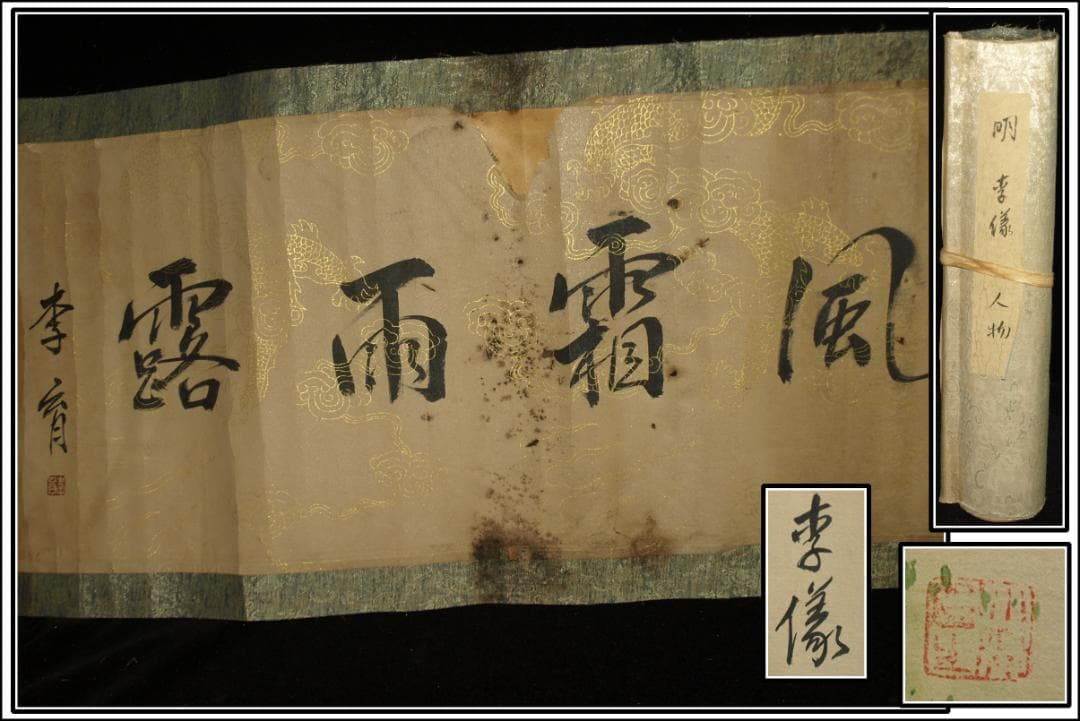 風霜雨露
李育
明 李儀 人物
李儀